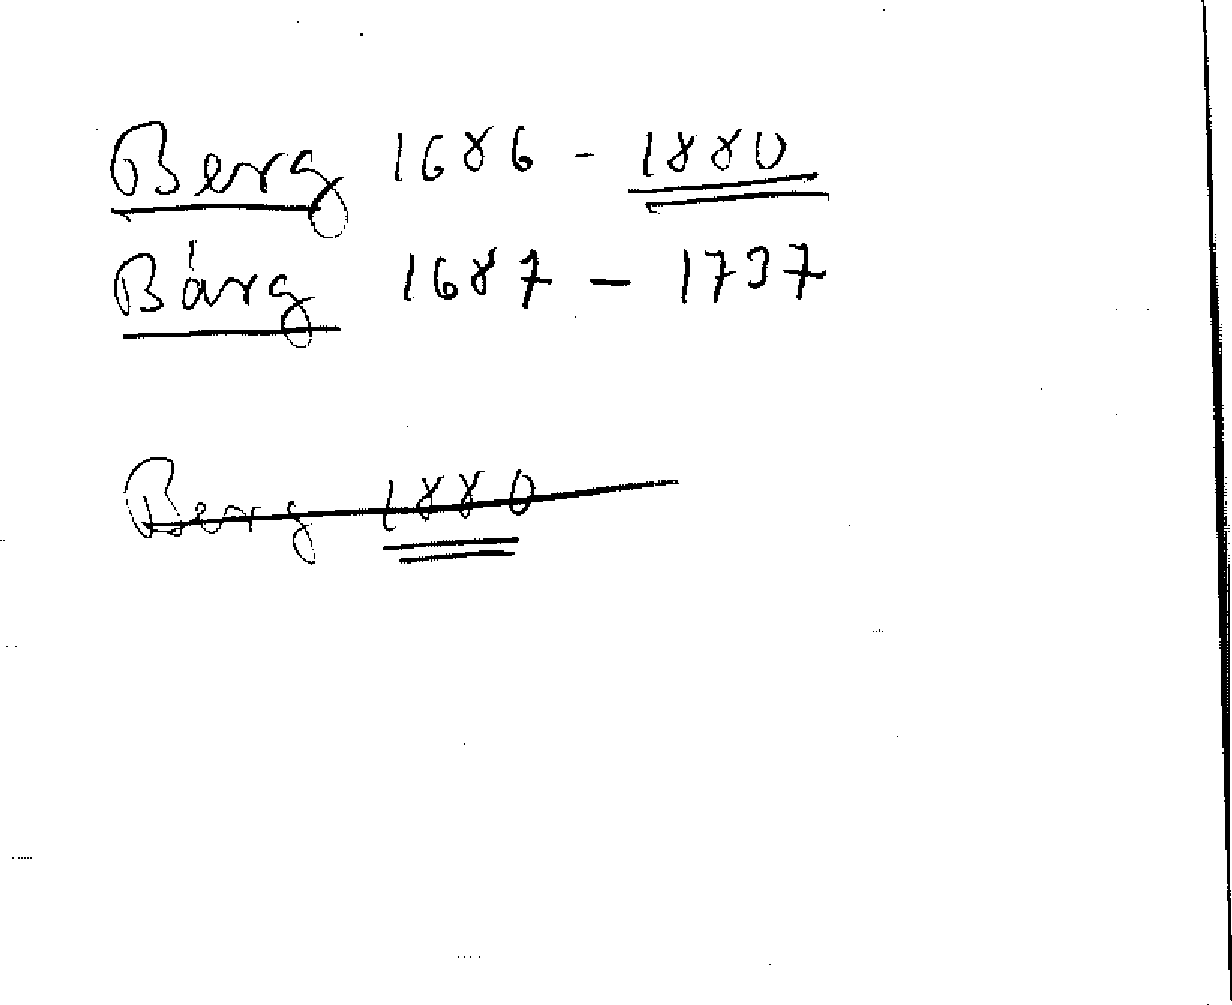 Berg 1686 - 1880
Bárg 1687 - 1737
Berg 1880